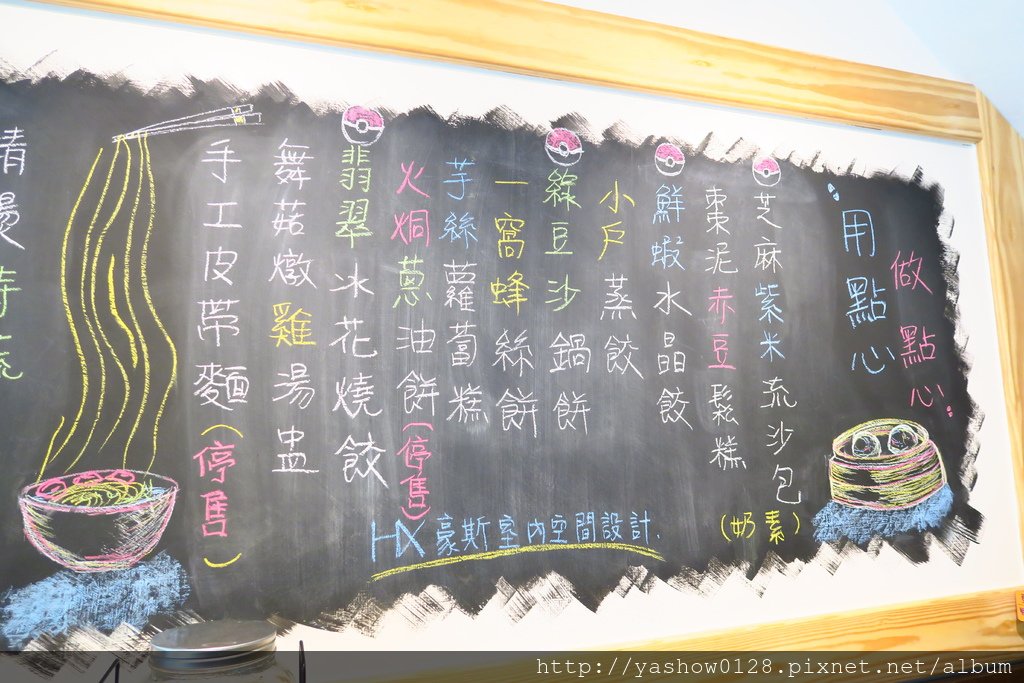 做點心
用點心
芝麻紫米流沙包
(奶素)
棗泥赤豆鬆糕
鮮蝦水晶餃
小戶蒸餃
綠豆沙鍋餅
一窩蜂絲餅
芋絲蘿蔔糕
火焗蔥油餅(停售)
翡翠冰花燒餃
舞菇燉雞湯盅
手工皮帶麵(停售)
HX豪斯室內空間設計.
http://yashow0128.pixnet.net/album